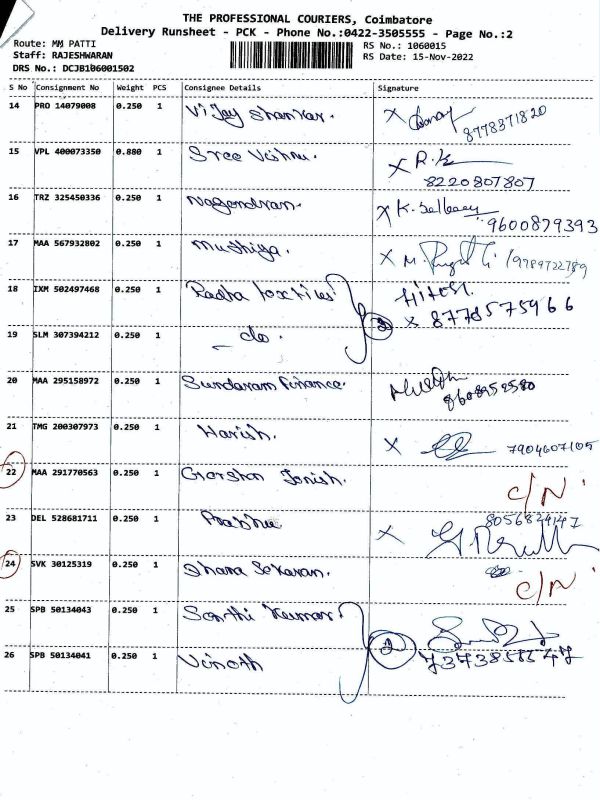 THE PROFESSIONAL COURIERS, Coimbatore
Delivery Runsheet - PCK - Phone No.:0422-3505555 - Page No.:2
Route: MM PATTI
RS No.: 1060015
Staff: RAJESHWARAN
RS Date: 15-Nov-2022
DRS No.: DCJB106001502
S No Consignment No Weight PCS Consignee Details Signature
14 PRO 14079008 0.250 1 Vijay Shankar. X 8778371820
15 VPL 400073350 0.880 1 Sree Vishnu. X R.K 8220807807
16 TRZ 325450336 0.250 1 Nagendran. X 9600879393
17 MAA 567932802 0.250 1 Muthiya. X M. 9789722789
18 IXM 502497468 0.250 1 Radha textiles Hitesh. X 8778575966
19 SLM 307394212 0.250 1 — do. 2
20 MAA 295158972 0.250 1 Sundaram Finance.
21 TMG 200307973 0.250 1 Harish. X 7904607105
22 MAA 291770563 0.250 1 C/N
23 DEL 528681711 0.250 1 Prabhu X 8056824147
24 SVK 30125319 0.250 1 Dhana Sekaran. C/N
25 SPB 50134043 0.250 1 Santhi Kumar
26 SPB 50134041 0.250 1 Vinoth 2